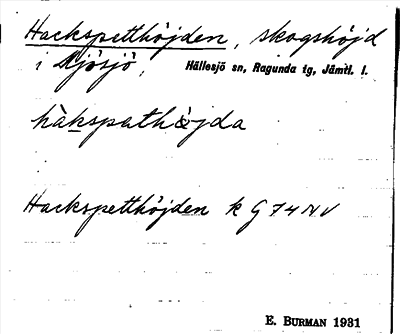 Hackspetthöjden, skogshöjd
i Kjösjö, Hällesjö sn, Ragunda tg, Jämtl. l.
hàkspathö̀jda
Hackspetthöjden k G 74 NV
E. BURMAN 1931